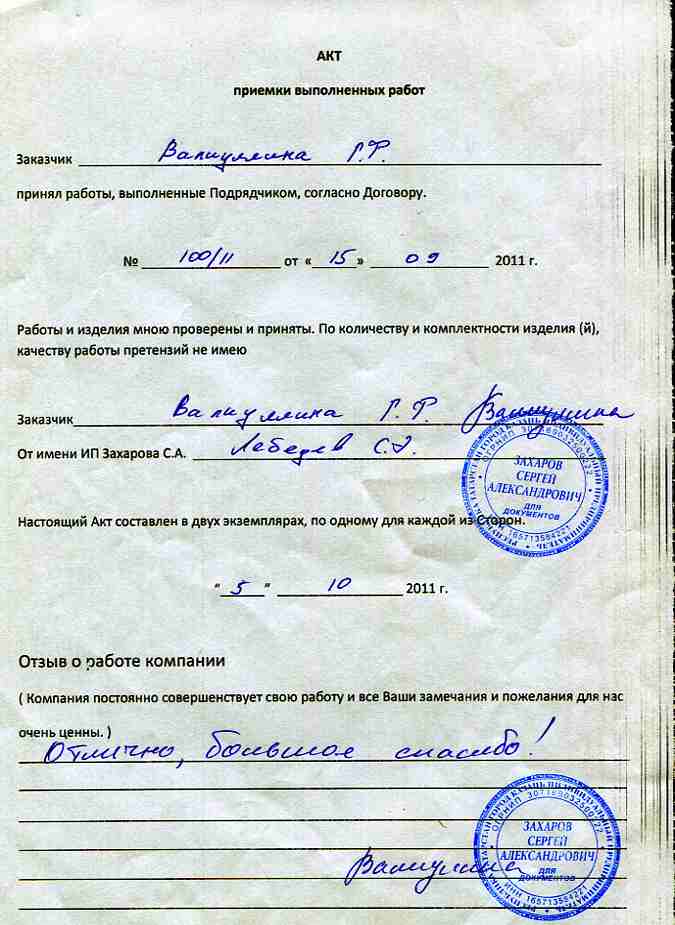 АКТ
приемки выполненных работ
Заказчик Валиуллина Г.Ф.
принял работы, выполненные Подрядчиком, согласно Договору.
№ 100/11 от «15» 09 2011 г.
Работы и изделия мною проверены и приняты. По количеству и комплектности изделия (й),
качеству работы претензий не имею
Заказчик Валиуллина Г.Ф.
От имени ИП Захарова С.А. Лебедев С.
ЗАХАРОВ
СЕРГЕЙ
АЛЕКСАНДРОВИЧ
ДЛЯ
ДОКУМЕНТОВ
Настоящий Акт составлен в двух экземплярах, по одному для каждой из Сторон.
"5" 10 2011 г.
Отзыв о работе компании
( Компания постоянно совершенствует свою работу и все Ваши замечания и пожелания для нас
очень ценны. )
Отлично, большое спасибо!
ЗАХАРОВ
СЕРГЕЙ
АЛЕКСАНДРОВИЧ
ДЛЯ
ДОКУМЕНТОВ